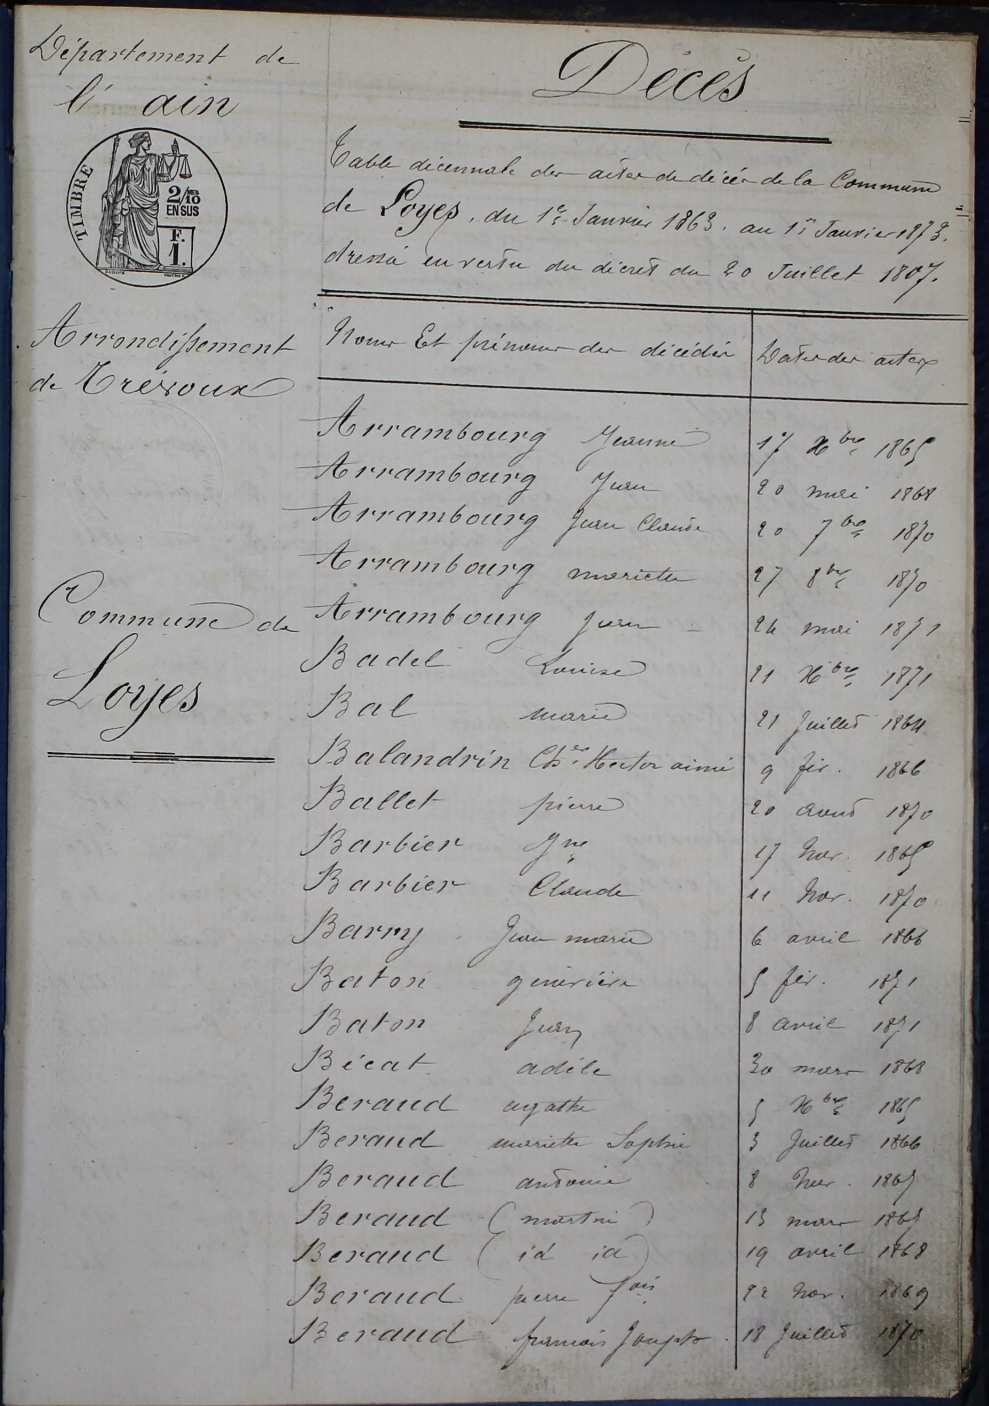 Département de
l' ain
TIMBRE
2/10
EN SUS
F.
1.
Arrondissement
de Trévoux
Commune de
Loyes
Décès
Table décennale des actes de décès de la Commune
de Loyes, du 1er Janvier 1863. au 1er Janvier 1873.
dressé en vertu du décret du 20 Juillet 1807.
Noms Et prénoms des décédés Dates des actes
Arrambourg Jeanne 17 Xbre 1865
Arrambourg Jean 20 mai 1868
Arrambourg Jean Claude 20 7bre 1870
Arrambourg mariette 27 8bre 1870
Arrambourg Jean 24 mai 1871
Badel Louise 21 Xbre 1871
Bal marie 21 Juillet 1864
Balandrin Ches Hector aimé 9 fév. 1866
Ballet pierre 20 aout 1870
Barbier Jne 17 Nov. 1865
Barbier Claude 11 Nov. 1870
Barry Jean marie 6 avril 1866
Baton geneviève 5 fév. 1871
Baton Jean 8 avril 1871
Bécat adèle 30 mars 1868
Beraud agathe 5 Xbre 1865
Beraud mariette Sophie 3 Juillet 1866
Beraud antoine 8 Nov. 1865
Beraud (mort né) 13 mars 1865
Beraud (id id) 19 avril 1868
Beraud pierre fois 22 Nov. 1869
Beraud francois Joseph 18 Juillet 1870